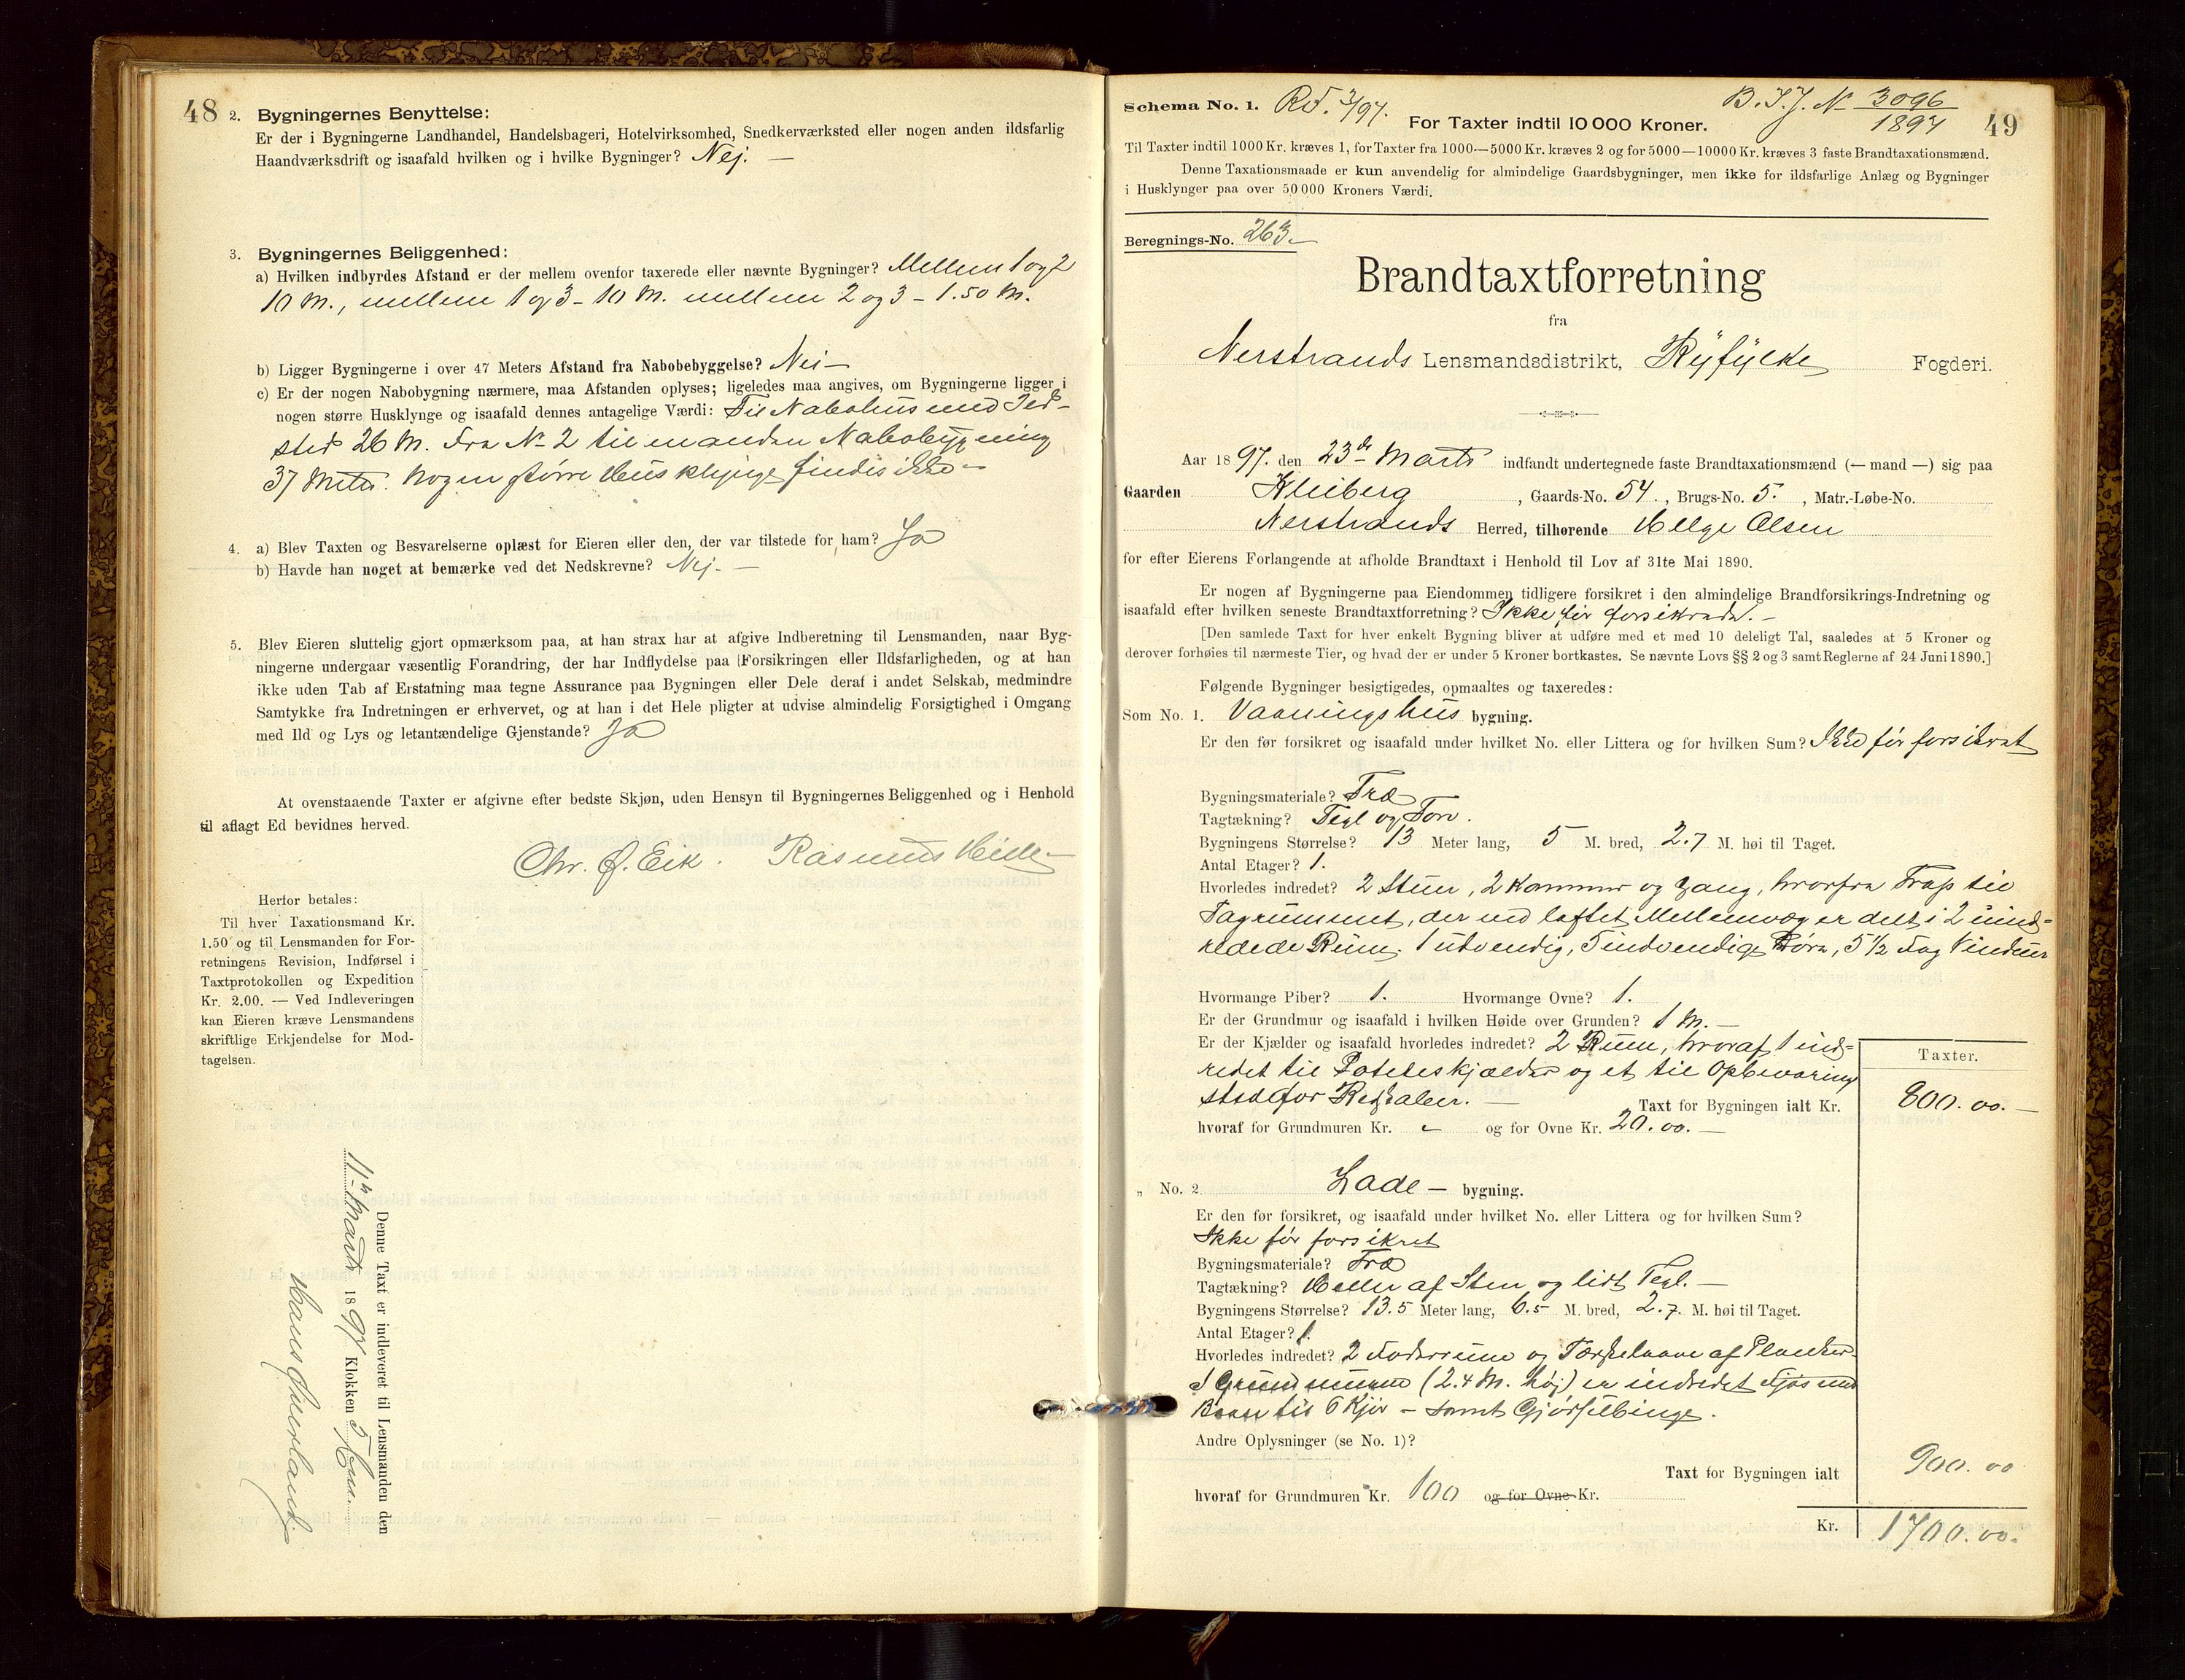 48
2. Bygningernes Benyttelse:
Er der i Bygningerne Landhandel, Handelsbageri, Hotelvirksomhed, Snedkerværksted eller nogen anden ildsfarlig
Haandværksdrift og isaafald hvilken og i hvilke Bygninger? Nej. —
3. Bygningernes Beliggenhed:
a) Hvilken indbyrdes Afstand er der mellem ovenfor taxerede eller nævnte Bygninger? Mellem 1 og 2
10 M., mellem 1 og 3 – 10 M. mellem 2 og 3 – 1.50 M.
b) Ligger Bygningerne i over 47 Meters Afstand fra Nabobebyggelse? Nei —
c) Er der nogen Nabobygning nærmere, maa Afstanden oplyses; ligeledes maa angives, om Bygningerne ligger i
nogen større Husklynge og isaafald dennes antagelige Værdi: Til Nabohus med Ild-
sted 26 M. Fra No 2 til manden Nabobygning
37 Meter. Nogen större Husklynge findes ikke —
4. a) Blev Taxten og Besvarelserne oplæst for Eieren eller den, der var tilstede for ham? Ja
b) Havde han noget at bemærke ved det Nedskrevne? Nej. —
5. Blev Eieren sluttelig gjort opmærksom paa, at han strax har at afgive Indberetning til Lensmanden, naar Byg-
ningerne undergaar væsentlig Forandring, der har Indflydelse paa Forsikringen eller Ildsfarligheden, og at han
ikke uden Tab af Erstatning maa tegne Assurance paa Bygningen eller Dele deraf i andet Selskab, medmindre
Samtykke fra Indretningen er erhvervet, og at han i det Hele pligter at udvise almindelig Forsigtighed i Omgang
med Ild og Lys og letantændelige Gjenstande? Ja
At ovenstaaende Taxter er afgivne efter bedste Skjøn, uden Hensyn til Bygningernes Beliggenhed og i Henhold
til aflagt Ed bevidnes herved.
Chr. Ø. Eik. Rasmus
Herfor betales:
Til hver Taxationsmand Kr.
1.50 og til Lensmanden for For-
retningens Revision, Indførsel i
Taxtprotokollen og Expedition
Kr. 2.00. — Ved Indleveringen
kan Eieren kræve Lensmandens
skriftlige Erkjendelse for Mod-
tagelsen.
Denne Taxt er indleveret til Lensmanden den
Marts 1897 Klokken 5
Schema No. 1.
For Taxter indtil 10 000 Kroner.
B. T. J. No 3096
1897
49
Til Taxter indtil 1000 Kr. kræves 1, for Taxter fra 1000—5000 Kr. kræves 2 og for 5000—10000 Kr. kræves 3 faste Brandtaxationsmænd.
Denne Taxationsmaade er kun anvendelig for almindelige Gaardsbygninger, men ikke for ildsfarlige Anlæg og Bygninger
i Husklynger paa over 50 000 Kroners Værdi.
Beregnings-No. 263 —
Brandtaxtforretning
fra
Nerstrands Lensmandsdistrikt, Ryfylke Fogderi.
Aar 1897. den 23de Marts indfandt undertegnede faste Brandtaxationsmænd (— mand —) sig paa
Gaarden Kleiberg, Gaards-No. 54., Brugs-No. 5., Matr.-Løbe-No.
Nerstrands Herred, tilhørende Helge Olsen
for efter Eierens Forlangende at afholde Brandtaxt i Henhold til Lov af 31te Mai 1890.
Er nogen af Bygningerne paa Eiendommen tidligere forsikret i den almindelige Brandforsikrings-Indretning og
isaafald efter hvilken seneste Brandtaxtforretning? Ikke för forsikrede. —
[Den samlede Taxt for hver enkelt Bygning bliver at udføre med et med 10 deleligt Tal, saaledes at 5 Kroner og
derover forhøies til nærmeste Tier, og hvad der er under 5 Kroner bortkastes. Se nævnte Lovs §§ 2 og 3 samt Reglerne af 24 Juni 1890.]
Følgende Bygninger besigtigedes, opmaaltes og taxeredes:
Som No. 1. Vaaningshus bygning.
Er den før forsikret og isaafald under hvilket No. eller Littera og for hvilken Sum? Ikke för forsikret
Bygningsmateriale? Træ
Tagtækning? Tegl og Torv.
Bygningens Størrelse? 13 Meter lang, 5 M. bred, 2.7 M. høi til Taget.
Antal Etager? 1.
Hvorledes indredet? 2 Stuer, 2 Kammer og Gang, hvorfra Trap til
Tagrummet, der ved loftet Mellemvæg er delt i 2 uind-
redede Rum. 1 udvendig, 5 indvendige Döre, 5 1/2 Fag Vinduer
Hvormange Piber? 1. Hvormange Ovne? 1.
Er der Grundmur og isaafald i hvilken Høide over Grunden? 1 M. —
Er der Kjælder og isaafald hvorledes indredet? 2 Rum, hvoraf 1 ind-
redet til Poteteskjælder og et til Opbevaring
sted for Redskaber. — Taxt for Bygningen ialt Kr.
Taxter.
800.00. —
hvoraf for Grundmuren Kr. – og for Ovne Kr. 20.00. —
„ No. 2 Lade — bygning.
Er den før forsikret, og isaafald under hvilket No. eller Littera og for hvilken Sum?
Ikke för forsikret
Bygningsmateriale? Træ
Tagtækning? Heller af Sten og lidt Tegl. —
Bygningens Størrelse? 13.5 Meter lang, 6.5 M. bred, 2.7 M. høi til Taget.
Antal Etager? 1.
Hvorledes indredet? 2 Foderrum og Tærskelaave af Planker.
I Grundmuren (2.4 M. höj) er indredet Fjös med
Baase til 6 Kjör – samt Gjödselbinge.
Andre Oplysninger (se No. 1)?
Taxt for Bygningen ialt 900.00
hvoraf for Grundmuren Kr. 100 og for Ovne Kr.
Kr. 1700.00.